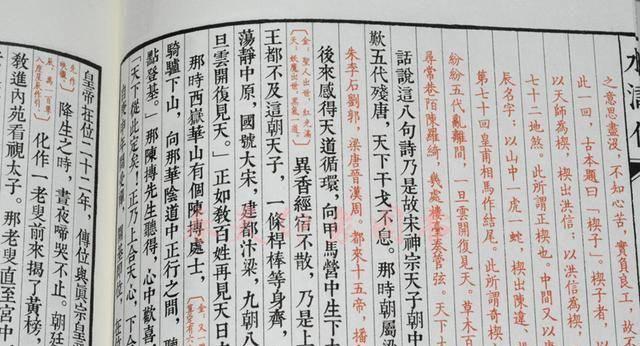 水滸傳
之意思盡沒不知心苦，實負良工，故不
此一回，古本題曰「楔子」。楔子者，以
以天師爲楔，楔出洪信；以洪信爲楔，
七十二地煞。此所謂正楔也。中間又以
辰名字；以山中一虎一蛇，楔出陳達、
第七十回皇甫相馬作結尾。此所謂奇楔
紛紛五代亂離間，一旦雲開復見天。草木百
尋常巷陌陳羅綺，幾處樓臺奏管弦。天下
話說這八句詩乃是故宋神宗天子朝中
歎五代殘唐，天下干戈不息。那時朝屬梁
朱李石劉郭，梁唐晉漢周。都來十五帝，播
後來感得天道循環，向甲馬營中生下太
金：聖人出世，紅光滿天；妖魔出世，黑氣一道。異香經宿不散，乃是上
王都不及這朝天子，一條桿棒等身齊，
蕩靜中原，國號大宋，建都汴梁，九朝八
旦雲開復見天。」正如教百姓再見天日
那時西嶽華山有個陳摶處士，
騎驢下山，向那華陰道中正行之間，聽
點登基。」那陳摶先生聽得，心中歡喜
「天下從此定矣！」正乃上合天心，下合
皇帝在位二十二年，傳位與真宗皇
降生之時，晝夜啼哭不止。朝廷
化作一老叟前來揭了黃榜，
教進內苑看視太子。那老叟直至宮中